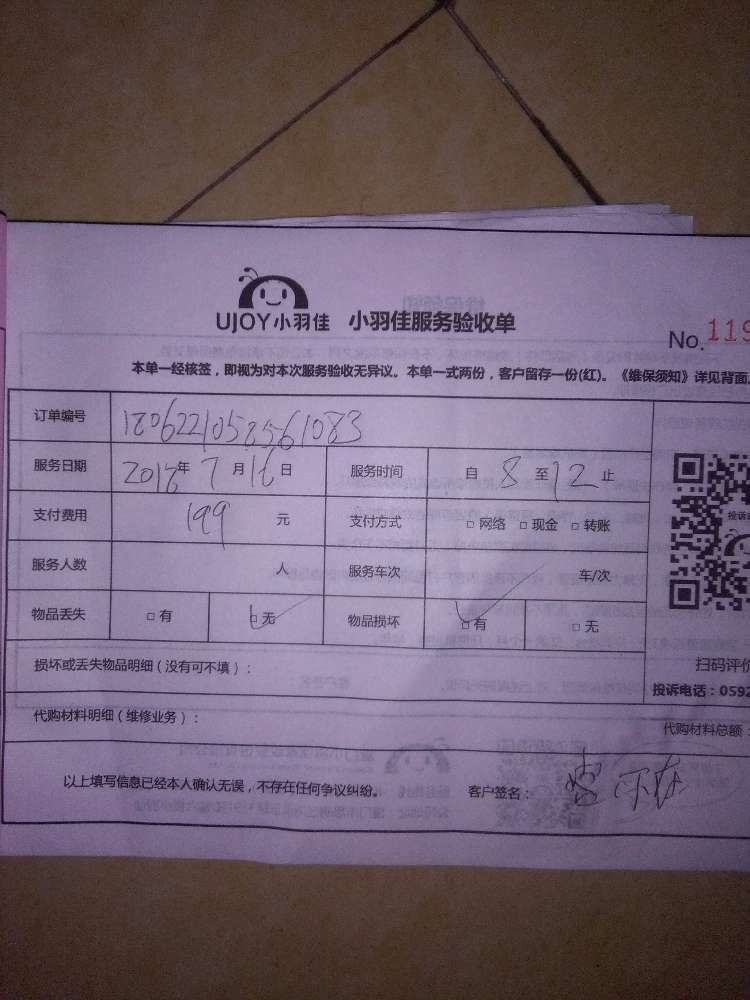 UJOY小羽佳 小羽佳服务验收单
No. 119
本单一经核签，即视为对本次服务验收无异议。本单一式两份，客户留存一份(红)。《维保须知》详见背面。
订单编号 1806221058561083
服务日期 2018年 7月16日 服务时间 自 8 至 12 止
支付费用 199 元 支付方式 □网络 □现金 □转账
服务人数 人 服务车次 车/次
物品丢失 □有 □无 物品损坏 □有 □无
损坏或丢失物品明细（没有可不填）：
扫码评价
投诉电话：0592
代购材料明细（维修业务）：
代购材料总额：
以上填写信息已经本人确认无误，不存在任何争议纠纷。 客户签名：